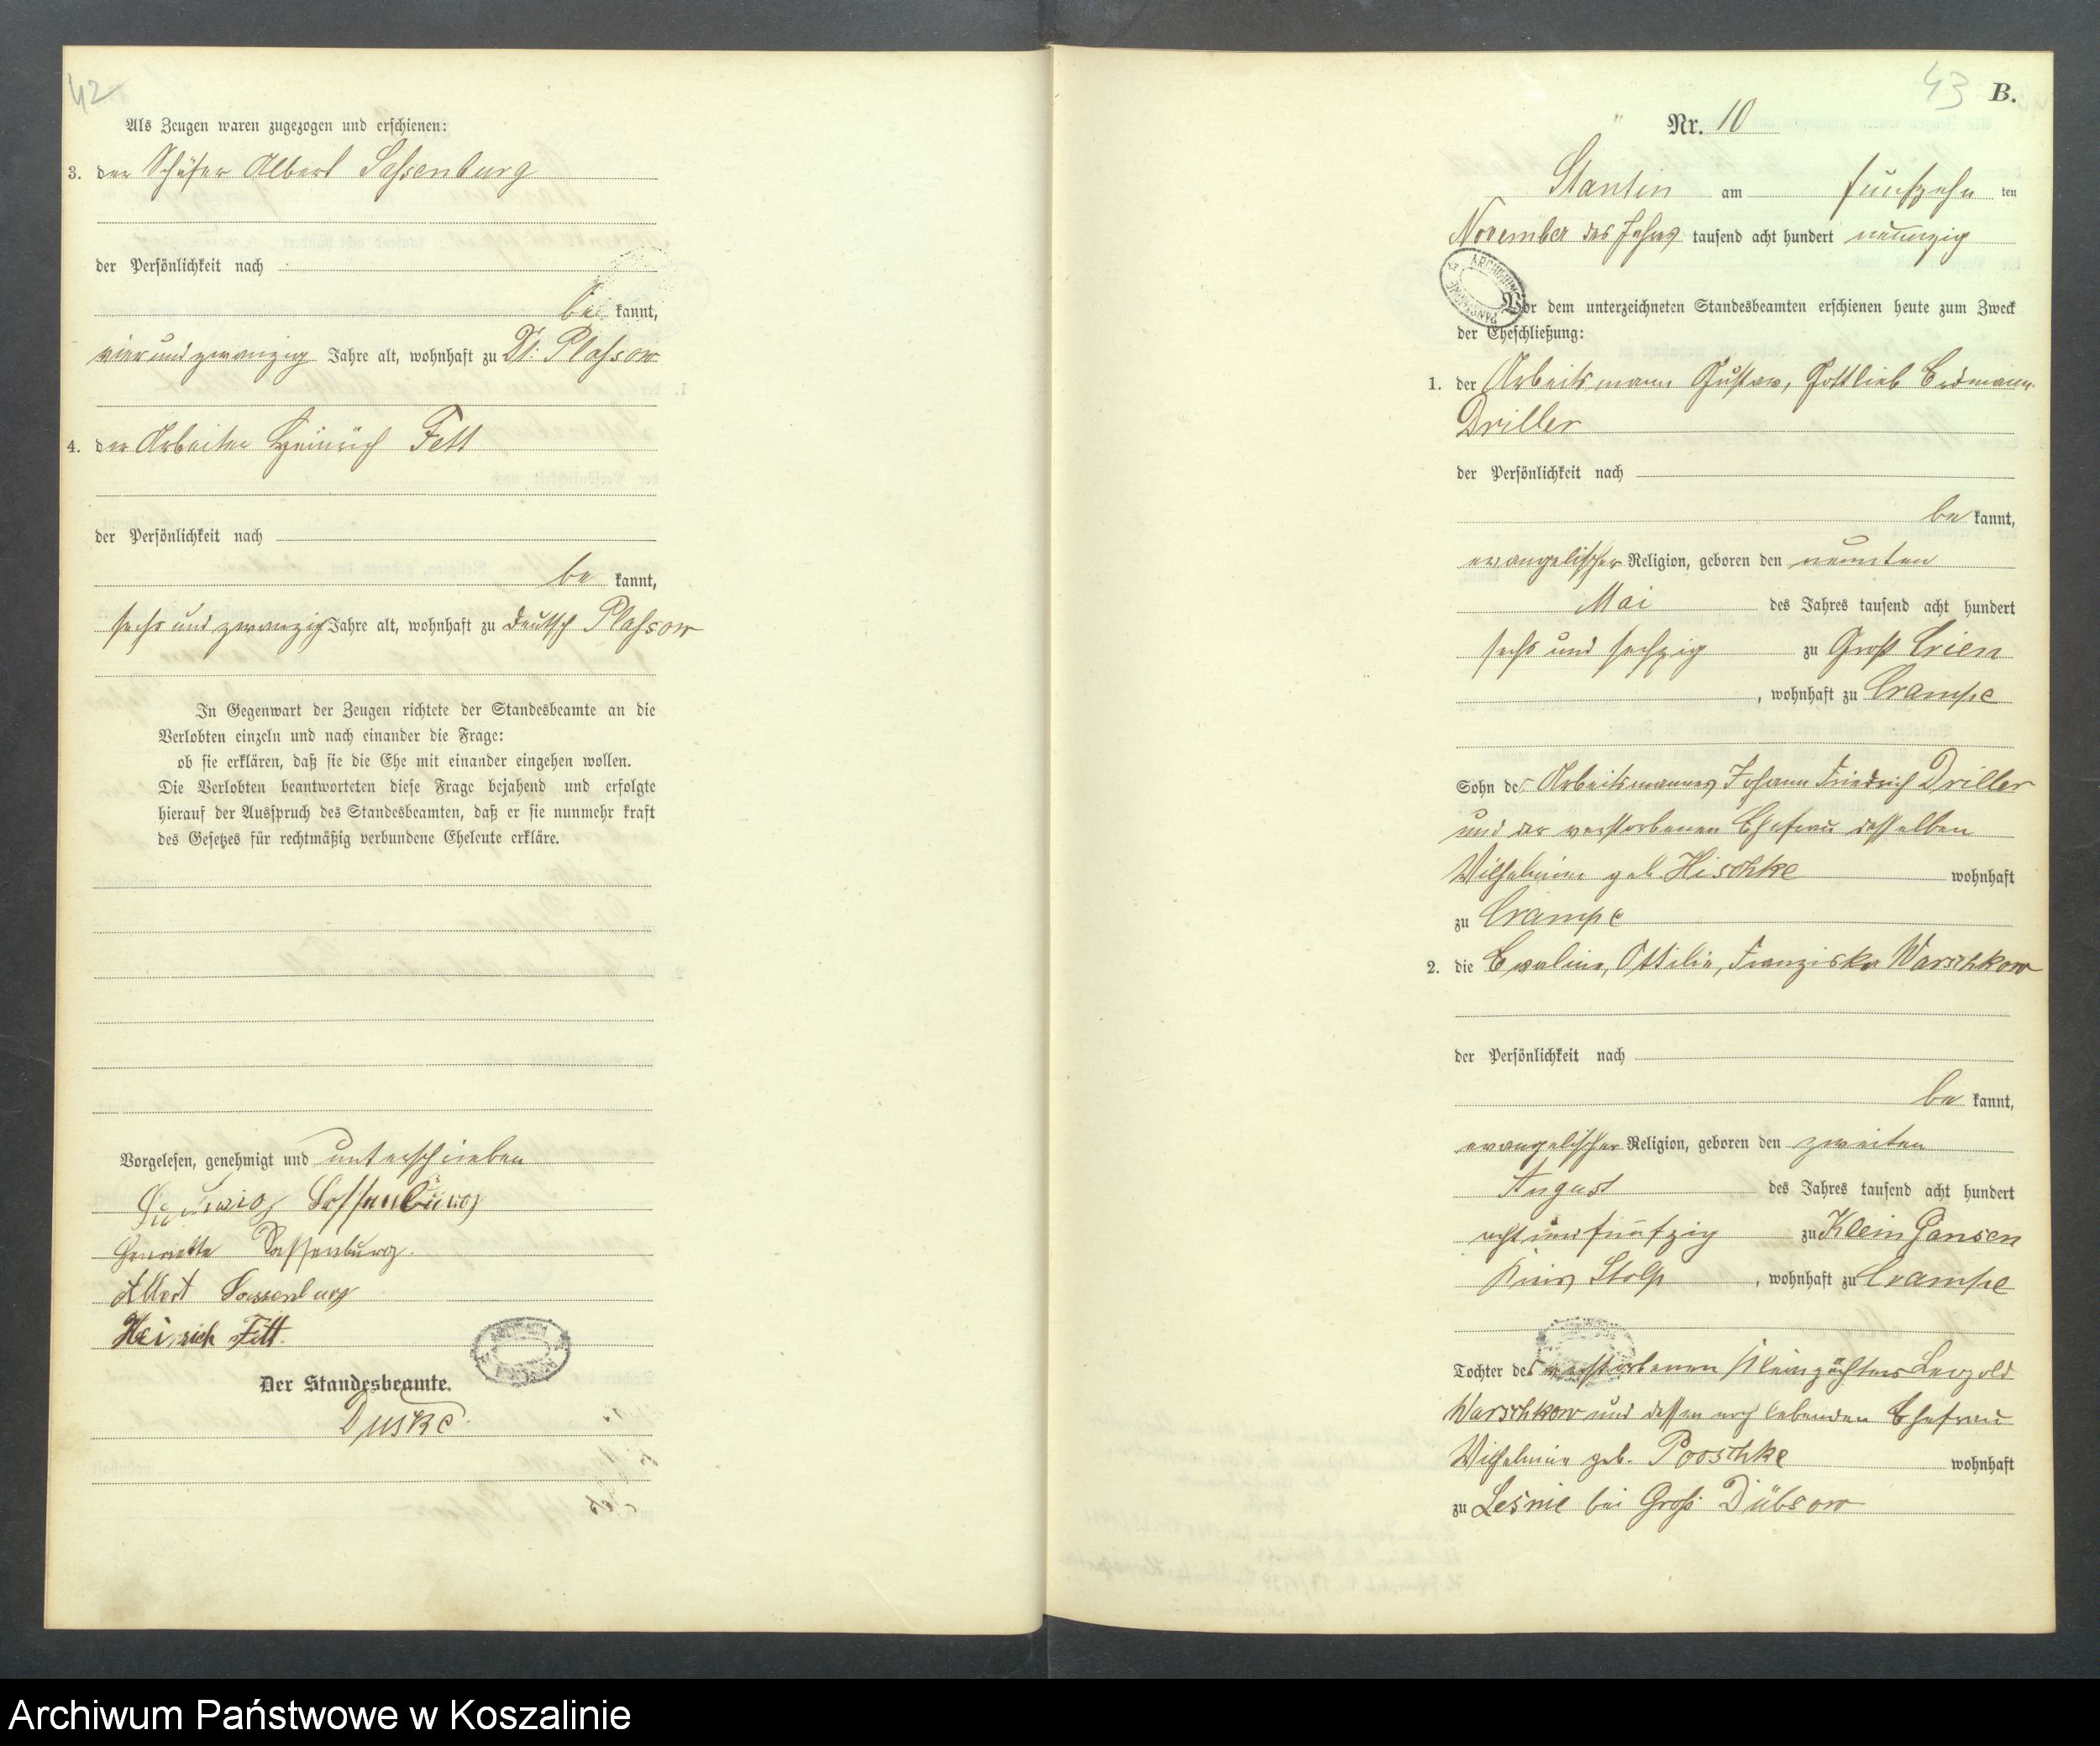 42
Als Zeugen waren zugezogen und erschienen:
3. der Schäfer Albert Sassenburg
der Persönlichkeit nach
be kannt,
vier und zwanzig Jahre alt, wohnhaft zu Dt. Plassow
4. der Arbeiter Heinrich Fett
der Persönlichkeit nach
be kannt,
sechs und zwanzig Jahre alt, wohnhaft zu Deutsch Plassow
In Gegenwart der Zeugen richtete der Standesbeamte an die
Verlobten einzeln und nach einander die Frage:
ob sie erklären, daß sie die Ehe mit einander eingehen wollen.
Die Verlobten beantworteten diese Frage bejahend und erfolgte
hierauf der Ausspruch des Standesbeamten, daß er sie nunmehr kraft
des Gesetzes für rechtmäßig verbundene Eheleute erkläre.
Vorgelesen, genehmigt und unterschrieben
Sassenburg
Henriette Sassenburg.
Albert Sassenburg
Heinrich Fett.
Der Standesbeamte.
Duske.
43 B.
Nr. 10
Stantin am fünfzehn ten
November des Jahres tausend acht hundert neunzig
Vor dem unterzeichneten Standesbeamten erschienen heute zum Zweck
der Eheschließung:
1. der Arbeitsmann Gustav, Gottlieb Erdmann
Driller
der Persönlichkeit nach
be kannt,
evangelischer Religion, geboren den neunten
Mai des Jahres tausend acht hundert
sechs und sechzig zu Groß Crien
, wohnhaft zu Crampe
Sohn des Arbeitsmannes Johann Friedrich Driller
und der verstorbenen Ehefrau desselben
Wilhelmine geb. Hischke wohnhaft
zu Crampe
2. die Eveline, Ottilie, Franziska Warschkow
der Persönlichkeit nach
be kannt,
evangelischer Religion, geboren den zweiten
August des Jahres tausend acht hundert
acht und fünfzig zu Klein Gansen
Kreis Stolp , wohnhaft zu Crampe
Tochter des verstorbenen Kleinpächters Leopold
Warschkow und dessen noch lebenden Ehefrau
Wilhelmine geb. Pooschke wohnhaft
zu Lesnie bei Groß Dübsow
Archiwum Państwowe w Koszalinie